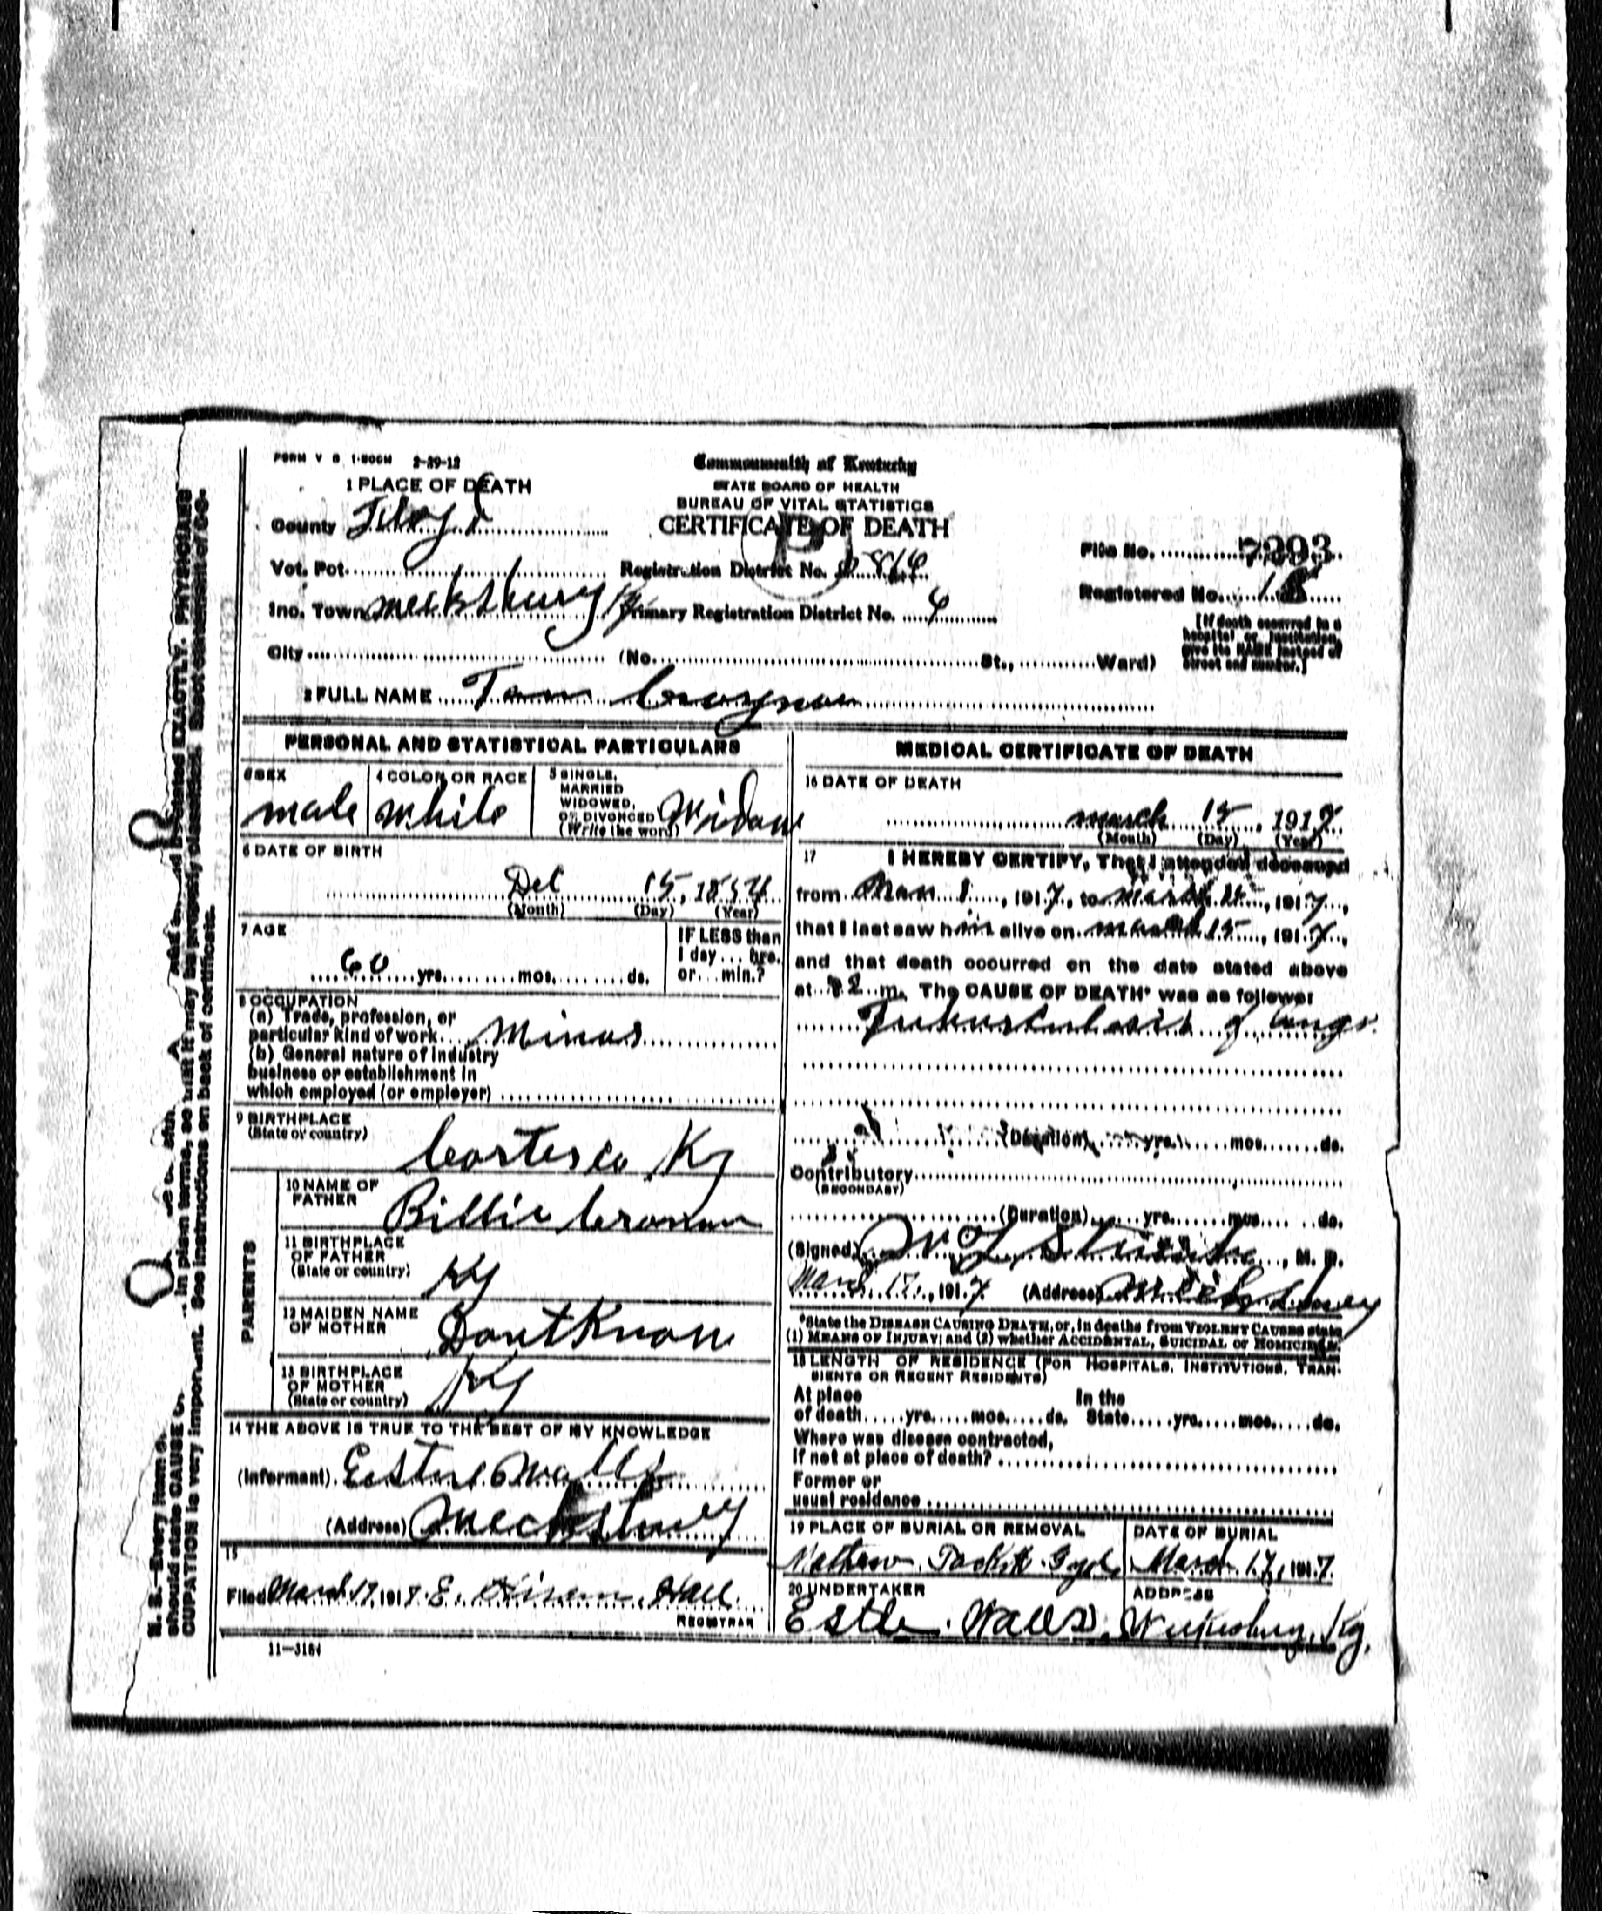 FORM V S 1-500M 2-29-12
Commonwealth of Kentucky
STATE BOARD OF HEALTH
BUREAU OF VITAL STATISTICS
CERTIFICATE OF DEATH
1 PLACE OF DEATH
County Floyd
Vot. Pct.
Inc. Town
City
Registration District No.
Primary Registration District No. 4
(No. St., Ward)
File No. 7293
Registered No.
[If death occurred in a
hospital or institution,
give its NAME instead of
street and number.]
2 FULL NAME Tom
PERSONAL AND STATISTICAL PARTICULARS
3 SEX
male
4 COLOR OR RACE
White
5 SINGLE,
MARRIED
WIDOWED,
OR DIVORCED
(Write the word)
Widow
6 DATE OF BIRTH
15, 1854
(Month) (Day) (Year)
7 AGE
60 yrs. mos. ds.
IF LESS than
1 day... hrs.
or... min.?
8 OCCUPATION
(a) Trade, profession, or
particular kind of work
(b) General nature of industry
business or establishment in
which employed (or employer)
9 BIRTHPLACE
(State or country)
Ky
PARENTS
10 NAME OF
FATHER
Billie
11 BIRTHPLACE
OF FATHER
(State or country)
Ky
12 MAIDEN NAME
OF MOTHER
Dont Know
13 BIRTHPLACE
OF MOTHER
(State or country)
Ky
14 THE ABOVE IS TRUE TO THE BEST OF MY KNOWLEDGE
(Informant)
(Address)
15
Filed March 17, 1917. E. Hall
REGISTRAR
11-3184
MEDICAL CERTIFICATE OF DEATH
16 DATE OF DEATH
march 15, 1917
(Month) (Day) (Year)
17 I HEREBY CERTIFY, That I attended deceased
from 1, 1917, to March 15, 1917,
that I last saw him alive on march 15, 1917,
and that death occurred on the date stated above
at m. The CAUSE OF DEATH* was as follows:
Tuberculosis of lungs
(Duration) yrs. mos. ds.
Contributory
(SECONDARY)
(Duration) yrs. mos. ds.
(Signed) M. D.
March 17, 1917 (Address)
*State the DISEASE CAUSING DEATH, or, in deaths from VIOLENT CAUSES state
(1) MEANS OF INJURY; and (2) whether ACCIDENTAL, SUICIDAL or HOMICIDAL.
18 LENGTH OF RESIDENCE (FOR HOSPITALS, INSTITUTIONS, TRAN-
SIENTS OR RECENT RESIDENTS)
At place In the
of death yrs. mos. ds. State yrs. mos. ds.
Where was disease contracted,
if not at place of death?
Former or
usual residence
19 PLACE OF BURIAL OR REMOVAL
DATE OF BURIAL
March 17, 1917
20 UNDERTAKER
ADDRESS
Estle Walls, Ky.
N. B.—Every item
should state CAUSE in plain terms, so that it may be properly classified. Exact statement of OC-
CUPATION is very important. See instructions on back of certificate.
stated EXACTLY. PHYSICIANS